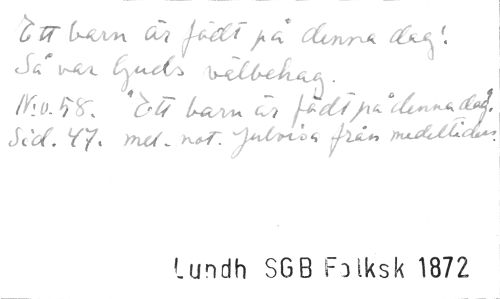 Ett barn är födt på denna dag!
Så var Guds välbehag.
N:o. 58. "Ett barn är födt på denna dag".
Sid. 47. mel. not. Julvisa från medeltiden.
Lundh SGB Folksk 1872